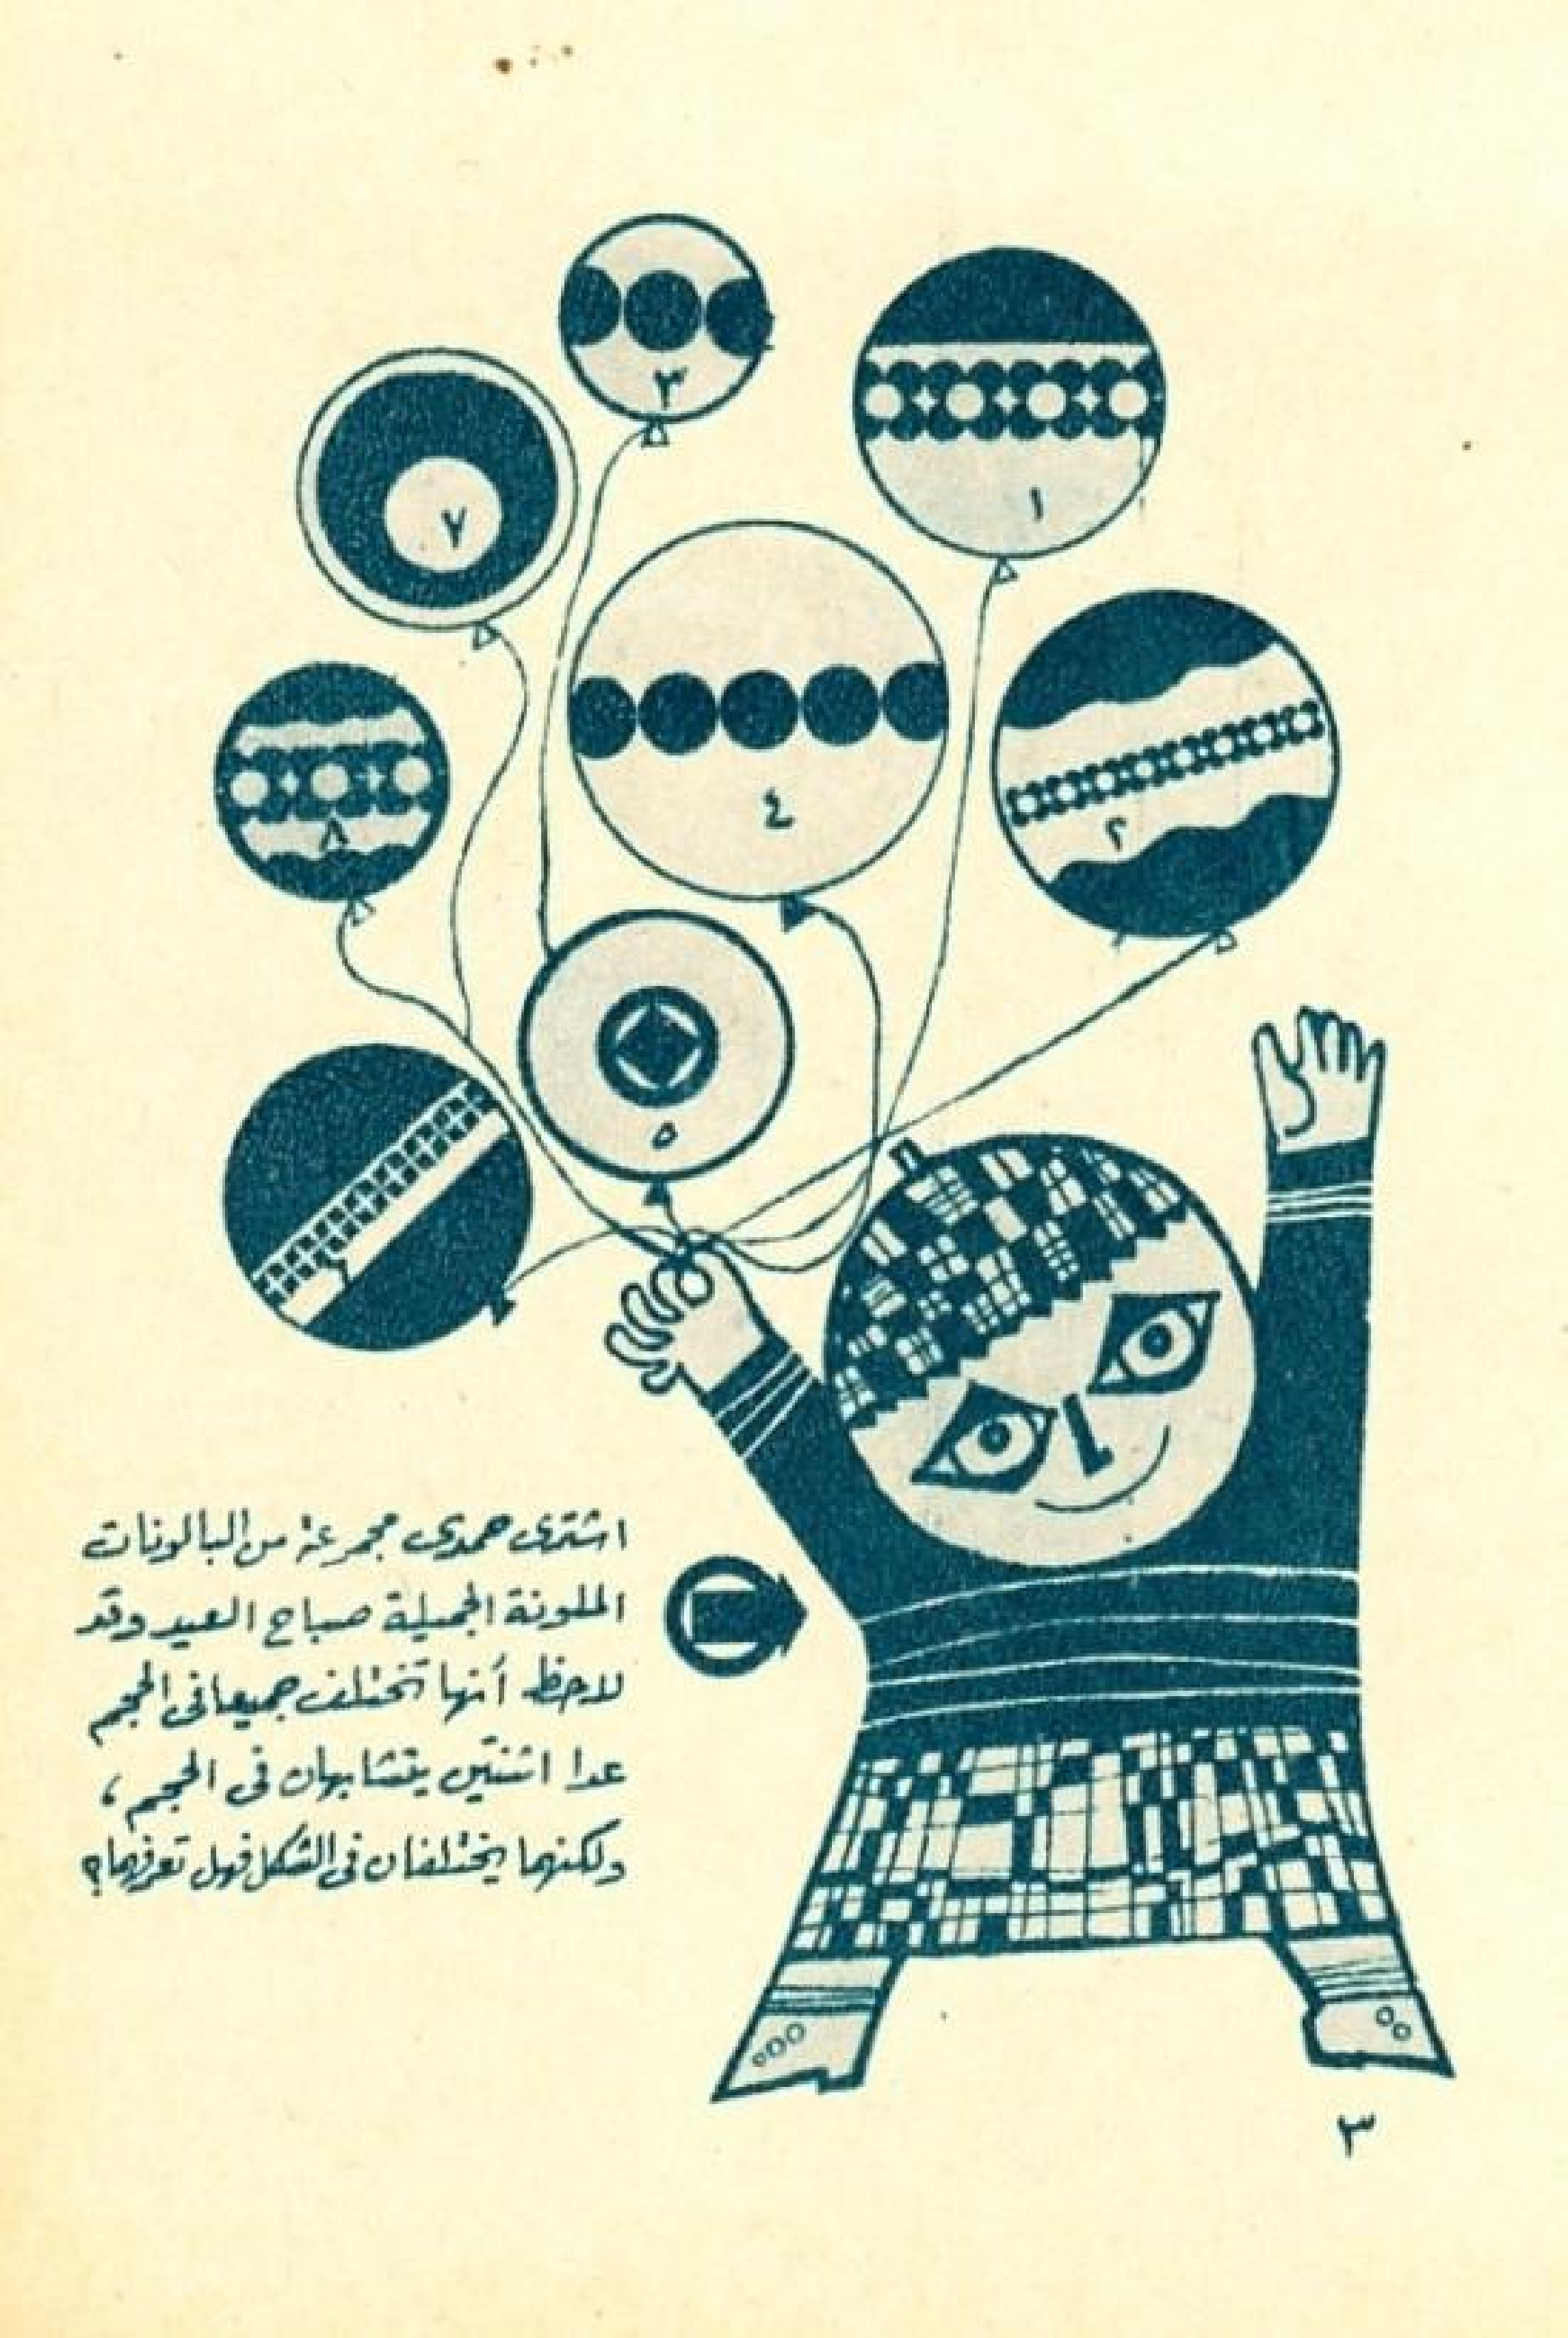 ٣
١
٧
٤
٢
٨
٥
٦
اشترى حمدى مجموعة من البالونات
الملونة الجميلة صباح العيد وقد
لاحظ أنها تختلف جميعا فى الحجم
عدا اثنتين يتشابهان فى الحجم ،
ولكنهما يختلفان فى الشكل فهل تعرفهما؟
٣